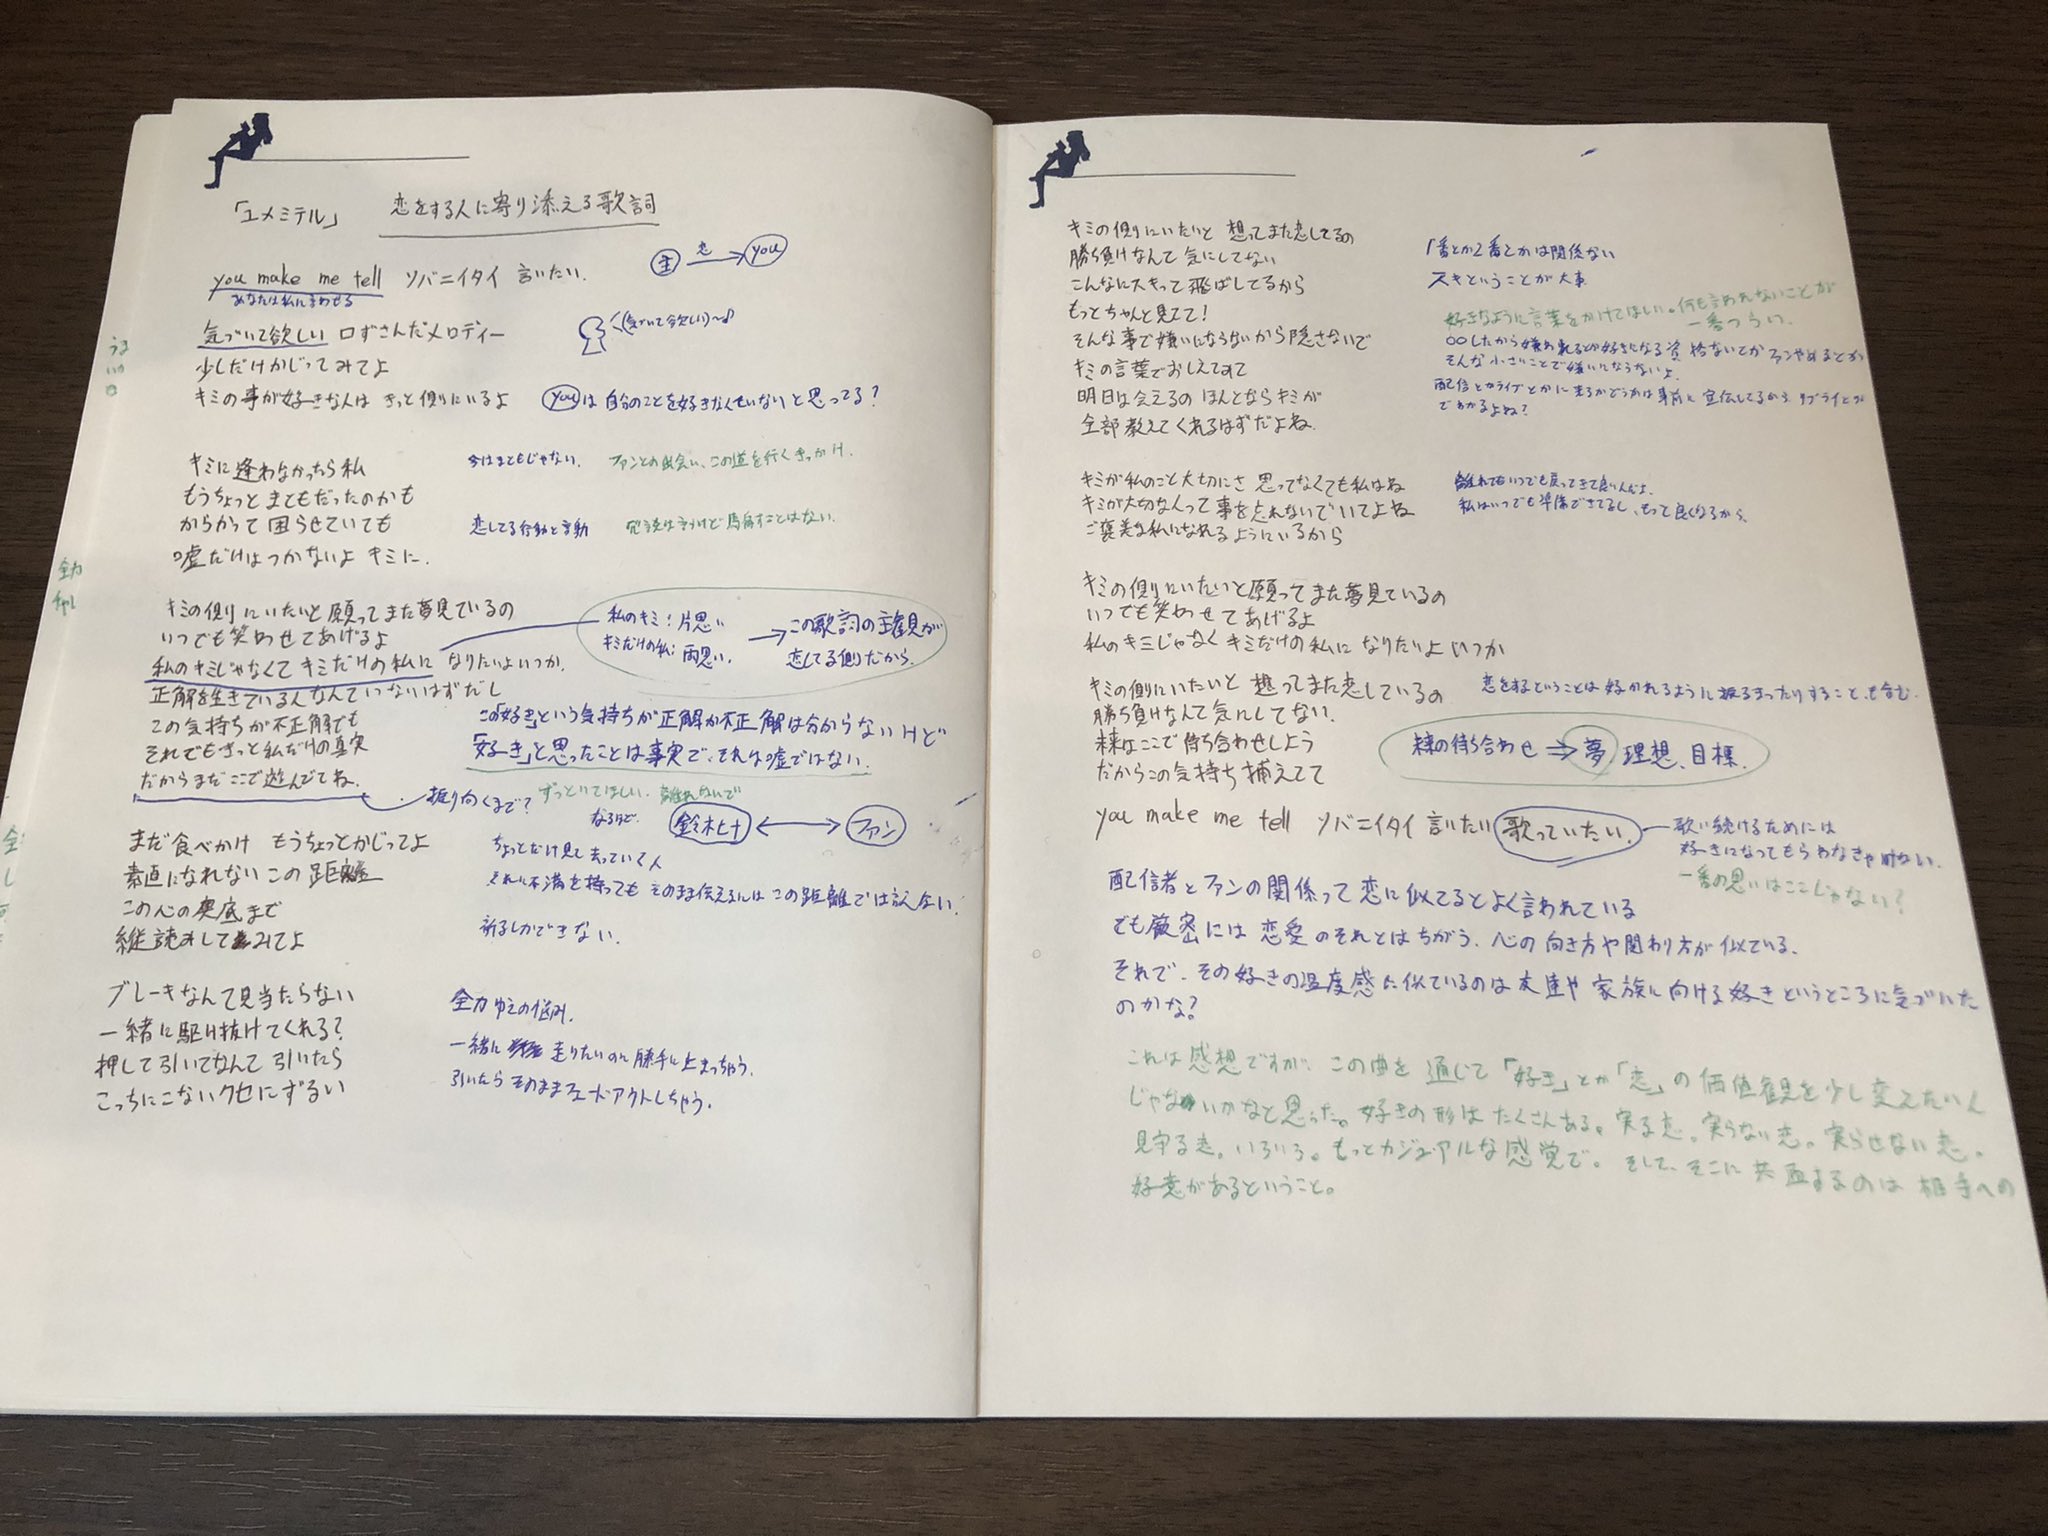 「ユメミテル」 恋をする人に寄り添える歌詞
主 恋 you
you make me tell ソバニイタイ 言いたい.
あなたは私に言わせる
気づいて欲しい 口ずさんだメロディー
(気づいて欲しい)〜♪
少しだけかじってみてよ
キミの事が好きな人は きっと側にいるよ
youは自分のことを好きな人もいないと思ってる?
キミに逢わなかったら私
今はまともじゃない. ファンとの出会い、この道を行くきっかけ.
もうちょっと まともだったのかも
からかって困らせていても
恋してる行動と言動 冗談は言うけど馬鹿すことはない.
嘘だけはつかないよ キミに.
キミの側にいたいと願ってまた夢見ているの
いつでも笑わせてあげるよ
私のキミじゃなくて キミだけの私に なりたいよいつか.
私のキミ:片思い
キミだけの私:両思い.
→この歌詞の主観が
恋してる側だから.
正解を生きている人なんていないはずだし
この気持ちが不正解でも
それでもきっと私だけの真実
だからまだここで遊んでてね.
この「好き」という気持ちが正解か不正解は分からないけど
「好き」と思ったことは事実で、それは嘘ではない.
振り向くまで? ずっといてほしい. 離れないで
なるほど.
鈴木ヒナ ↔ ファン
まだ食べかけ もうちょっとかじってよ
素直になれない この距離
この心の奥底まで
縦読みしてみてよ
ちょっとだけ見て去っていく人
それに不満を持っても そのまま伝えるには この距離では言えない.
祈るしかできない.
ブレーキなんて見当たらない
一緒に駆け抜けてくれる?
押して引いてなんて 引いたら
こっちにこないクセにずるい
全力ゆえの悩み.
一緒に 走りたいのに勝手に止まっちゃう.
引いたらそのままフェードアウトしちゃう.
キミの側にいたいと 想ってまた恋してるの
勝ち負けなんて気にしてない
こんなにスキって飛ばしてるから
もっとちゃんと見てて!
そんな事で嫌いにならないから隠さないで
キミの言葉でおしえてみて
明日は会えるの ほんとならキミが
全部教えてくれるはずだよね.
1番とか2番とかは関係ない
スキということが大事
好きなように言葉をかけてほしい。何も言われないことが
一番つらい.
○○したから嫌われるとか好きになる資格ないとかファンやめるとか
そんな小さいことで嫌いにならないよ.
配信とかライブとかに来るかどうかは事前に宣伝してるから、リプライとか
でわかるよね?
キミが私のこと大切にさ 思ってなくても私はね
キミが大切なんって事を忘れないでいてよね
ご褒美な私になれるようにいるから
離れてもいつでも戻ってきて良いんだよ.
私はいつでも準備できてるし、もって良くなるから、
キミの側にいたいと願ってまた夢見ているの
いつでも笑わせてあげるよ
私のキミじゃなく キミだけの私に なりたいよ いつか
キミの側にいたいと 想ってまた恋しているの
勝ち負けなんて気にしてない.
未来はここで待ち合わせしよう
だからこの気持ち捕えてて
恋をするということは好かれるように振るまったりすることも含む.
未来の待ち合わせ ⇒ 夢 理想、目標.
you make me tell ソバニイタイ 言いたい 歌っていたい.
歌い続けるためには
好きになってもらわなきゃいけない.
一番の思いはここじゃない?
配信者とファンの関係って恋に似てるとよく言われている
でも厳密には 恋愛のそれとはちがう、心の向き方や関わり方が似ている.
それで、その好きの温度感に似ているのは友達や家族に向ける好きというところに気づいた
のかな?
これは感想ですが、この曲を通じて「好き」とか「恋」の価値観を少し変えたいん
じゃないかなと思った。好きの形はたくさんある。実る恋。実らない恋。実らせない恋。
見守る恋。いろいろ。もっとカジュアルな感覚で。そして、そこに共通するのは相手への
好意があるということ。